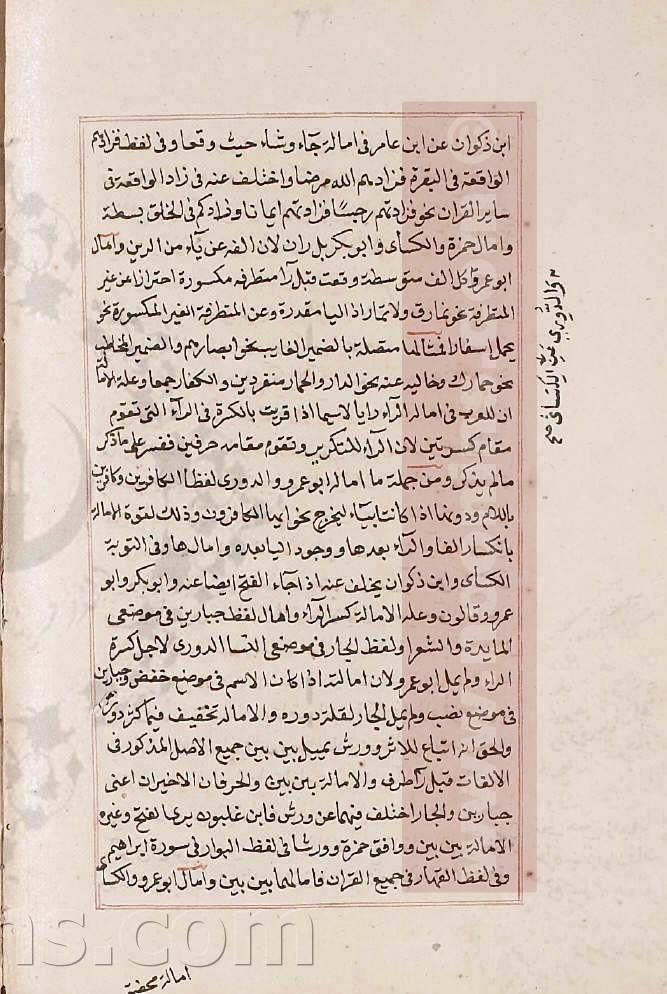 ابن ذكوان عن ابن عامر فى امالة جآء وشاء حيث وقعا وفى لفظ فزادهم
الواقعة فى البقرة فزادهم الله مرضا واختلف عنه فى زاد الواقعة فى
ساير القران نحو فزادتهم رجسًا فزادتهم ايمانا وزادكم فى الخلق بسطة
وامال حمزة والكساى وابو بكر بل ران لان الفه عن يآء من الرين وامال
ابو عمرو كل الف متوسطة وقعت قبل رآ متطرفه مكسورة احترازا عن غير
المتطرفة نحو نمارق ولا تمار اذ اليا مقدرة وعن المتطرفة الغير المكسورة نحو
يحمل اسفارا متصلة بالضمير الغايب نحو ابصارهم والضمير المخاطب
نحو حمارك وخاليه عنه نحو الدار والحمار منفردين والكفار جمعا وعلة الامالة
ان للعرب فى امالة الرآء رايا لاسيما اذا قربت بالكسرة فى الرآء التى تقوم
مقام كسرتين لان الرآء للتكرير وتقوم مقامه حرفين فقس على ما ذكر
مالم يذكر ومن جملة ما اماله ابو عمرو والدورى لفظا الكافرين وكافرين
باللام ودونها اذا كانتا بيآء ليخرج نحو ايها الكافرون وذلك لقوة الامالة
بانكسار الفا والرآء بعدها ووجود اليا بعده وامال هار فى التوبة
الكساى وابن ذكوان بخلف عنه اذ اجآء الفتح ايضا عنه وابو بكر وابو
عمرو وقالون وعله الامالة كسر الرآء وامال لفظ جبارين فى موضعى
المايدة والشعرا ولفظ الجار فى موضعى النسا الدورى لاجل كسرة
الراء ولم يمل ابو عمرو لان امالته اذا كان الاسم فى موضع خفض وجبارين
فى موضع نصب ولم يمل الجار لقلة دوره والامالة تخفيف فيما كثر دوره
والحق انه اتباع للاثر وورش يميل بين بين جميع الاصل المذكور فى
الالفات قبل رآ طرف والامالة بين بين والحرفان الاخيران اعنى
جبارين والجار اختلف فيهما عن ورش فابن غلبون يرى الفتح وغيره
الامالة بين بين ووافق حمزة ورشا فى لفظ البوار فى سورة ابراهيم
وفى لفظ القهار فى جميع القران فامالهما بين بين وامال ابو عمرو والكساى
والدورى عن الكسائى صح
امالة محضة
ns.com